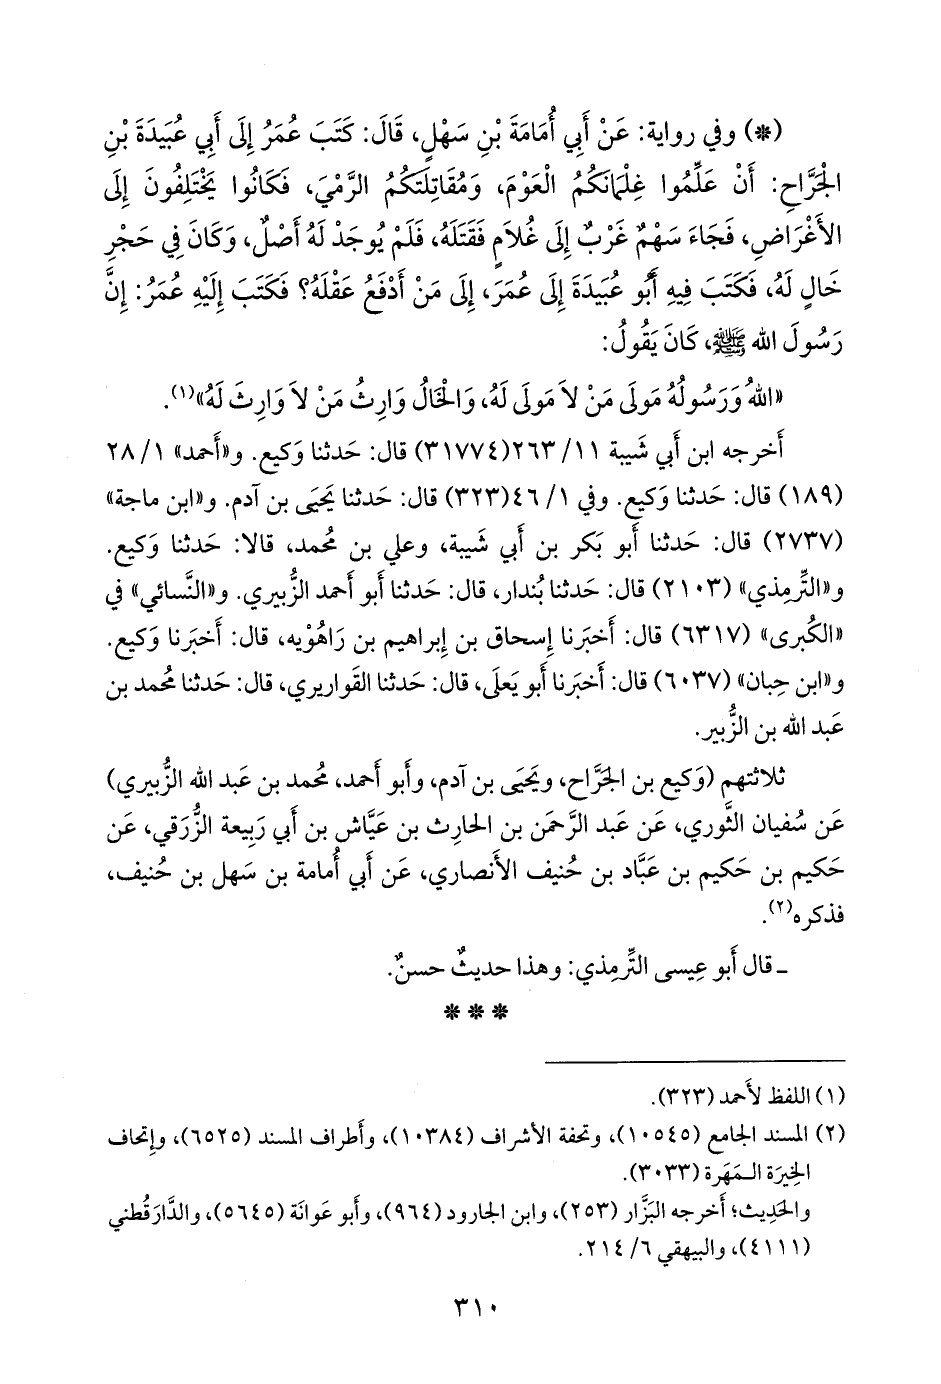 (*) وفي رواية: عَنْ أَبِي أُمَامَةَ بْنِ سَهْلٍ، قَالَ: كَتَبَ عُمَرُ إِلَى أَبِي عُبَيْدَةَ بْنِ
الْجَرَّاحِ: أَنْ عَلِّمُوا غِلْمَانَكُمُ الْعَوْمَ، وَمُقَاتِلَتَكُمُ الرَّمْيَ، فَكَانُوا يَخْتَلِفُونَ إِلَى
الأَغْرَاضِ، فَجَاءَ سَهْمٌ غَرْبٌ إِلَى غُلاَمٍ فَقَتَلَهُ، فَلَمْ يُوجَدْ لَهُ أَصْلٌ، وَكَانَ فِي حَجْرِ
خَالٍ لَهُ، فَكَتَبَ فِيهِ أَبُو عُبَيْدَةَ إِلَى عُمَرَ، إِلَى مَنْ أَدْفَعُ عَقْلَهُ؟ فَكَتَبَ إِلَيْهِ عُمَرُ: إِنَّ
رَسُولَ الله ﷺ، كَانَ يَقُولُ:
«اللهُ وَرَسُولُهُ مَولَى مَنْ لاَ مَولَى لَهُ، وَالْخَالُ وَارِثُ مَنْ لاَ وَارِثَ لَهُ»(١).
أَخرجه ابن أَبي شَيبة ١١/ ٢٦٣(٣١٧٧٤) قال: حَدثنا وَكيع. و«أَحمد» ١/ ٢٨
(١٨٩) قال: حَدثنا وَكيع. وفي ١/ ٤٦(٣٢٣) قال: حَدثنا يَحيَى بن آدم. و«ابن ماجة»
(٢٧٣٧) قال: حَدثنا أَبو بَكر بن أَبي شَيبة، وعلي بن مُحمد، قالا: حَدثنا وَكيع.
و«التِّرمِذي» (٢١٠٣) قال: حَدثنا بُندار، قال: حَدثنا أَبو أَحمد الزُّبيري. و«النَّسائي» في
«الكُبرى» (٦٣١٧) قال: أَخبَرنا إِسحاق بن إِبراهيم بن رَاهُوْيه، قال: أَخبَرنا وَكيع.
و«ابن حِبان» (٦٠٣٧) قال: أَخبَرنا أَبو يَعلَى، قال: حَدثنا القَواريري، قال: حَدثنا مُحمد بن
عَبد الله بن الزُّبير.
ثلاثتهم (وَكيع بن الجَرَّاح، ويَحيَى بن آدم، وأَبو أَحمد، مُحمد بن عَبد الله الزُّبيري)
عَن سُفيان الثَّوري، عَن عَبد الرَّحمَن بن الحارِث بن عَيَّاش بن أَبي رَبيعة الزُّرَقي، عَن
حَكيم بن حَكيم بن عَبَّاد بن حُنيف الأَنصاري، عَن أَبي أُمامة بن سَهل بن حُنيف،
فذكره(٢).
ـ قال أَبو عِيسى التِّرمِذي: وهذا حديثٌ حسنٌ.
* * *
(١) اللفظ لأَحمد (٣٢٣).
(٢) المسند الجامع (١٠٥٤٥)، وتحفة الأشراف (١٠٣٨٤)، وأَطراف المسند (٦٥٢٥)، وإتحاف
الخِيرَة المَهَرة (٣٠٣٣).
والحَدِيث؛ أَخرجه البَزَّار (٢٥٣)، وابن الجارود (٩٦٤)، وأَبو عَوانَة (٥٦٤٥)، والدَّارَقُطني
(٤١١١)، والبيهقي ٦/ ٢١٤.
٣١٠